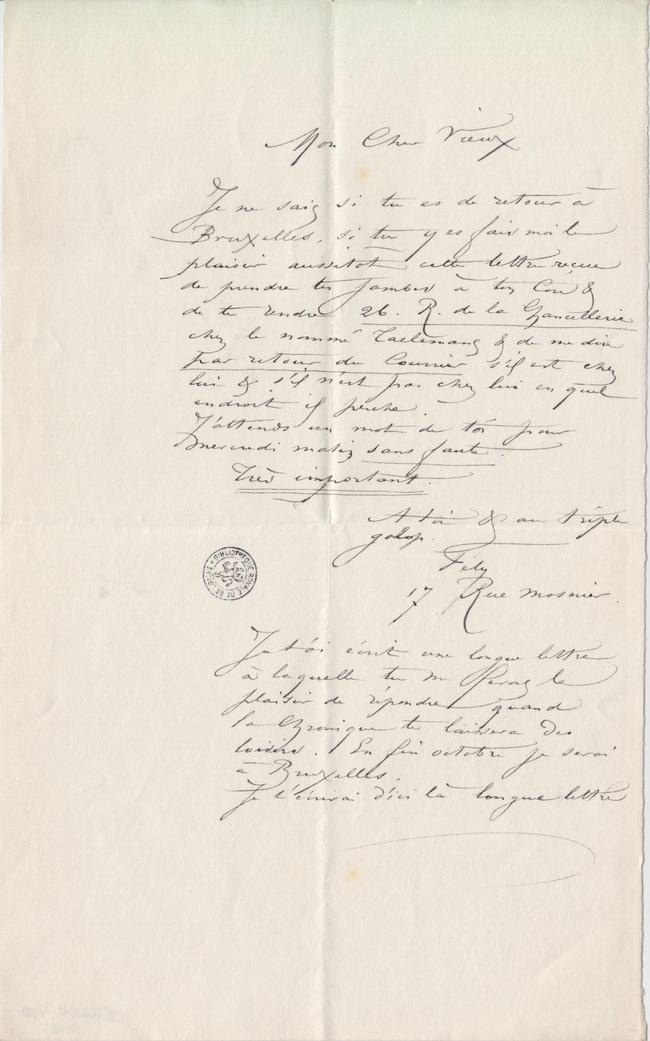 Mon Cher Vieux
Je ne sais si tu es de retour à
Bruxelles, si tu y es fais moi le
plaisir aussitôt cette lettre reçue
de prendre tes jambes à ton Cou &
de te rendre 26. R. de la Chancellerie
chez le nommé Taelemans & de me dire
par retour du Courrier s'il est chez
lui & s'il n'est pas chez lui en quel
endroit il perche.
J'attends un mot de toi pour
mercredi matin sans faute.
Très important.
A toi & au triple
galop.
Fély
17 Rue Mosnier.
BIBLIOTHÈQUE ROYALE DE BELGIQUE
Je t'ai écrit une longue lettre
à laquelle tu me feras le
plaisir de répondre quand
la Chronique te laissera des
loisirs. En fin octobre je serai
à Bruxelles.
Je t'écrirai d'ici là longue lettre